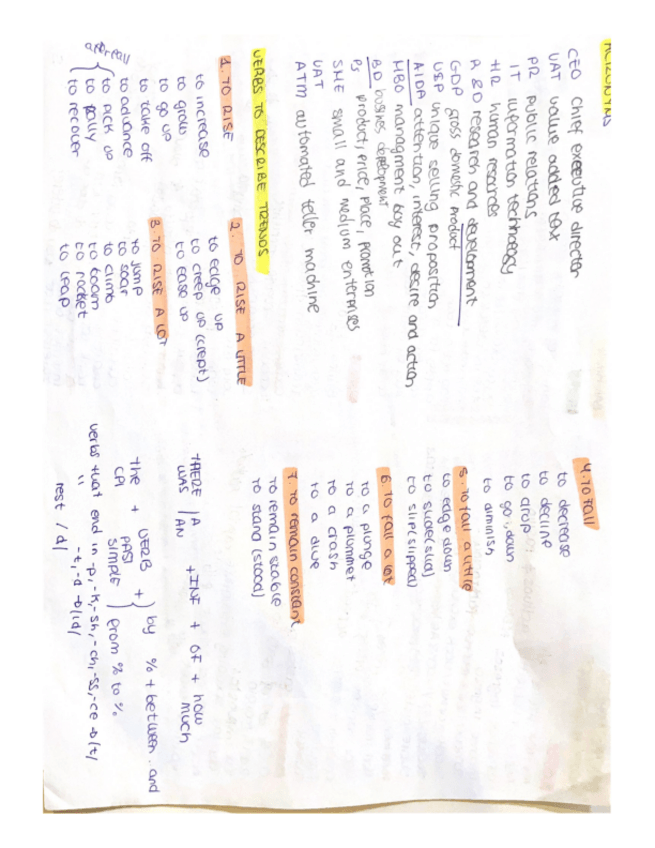 ACRONYMS
CEO chief executive director
VAT value added tax
PR public relations
IT information technology
HR human resources
R &D research and development
GDP gross domestic product
USP unique selling proposition
AIDA attention, interest, desire and action
MBO managment buy out
BD busines development
Ps product, price, place, promotion
SME small and medium enterprises
VAT
ATM automated teller machine
VERBS TO DESCRIBE TRENDS
1. TO RISE
to increase
to grow
to go up
to take off
to advance
to pick up
to rally
to recover
2. TO RISE A LITTLE
to edge up
to creep up (crept)
to ease up
3. TO RISE A LOT
to jump
to soar
to climb
to boom
to rocket
to leap
4. TO FALL
to decrease
to decline
to drop
to go down
to diminish
5. To fall a little
to edge down
to slide (slid)
to slip (slipped)
6. To fall a lot
to a plunge
to a plummet
to a crash
to a dive
7. To remain constant
to remain stable
to stand (stood)
THERE WAS / A AN + INF + OF + how much
the CPI + VERB PAST SIMPLE + } by % + between and
from % to %
verbs that end in -p, -k, -sh, -ch, -ss, -ce → /t/
" -t, -d → /id/
rest /d/